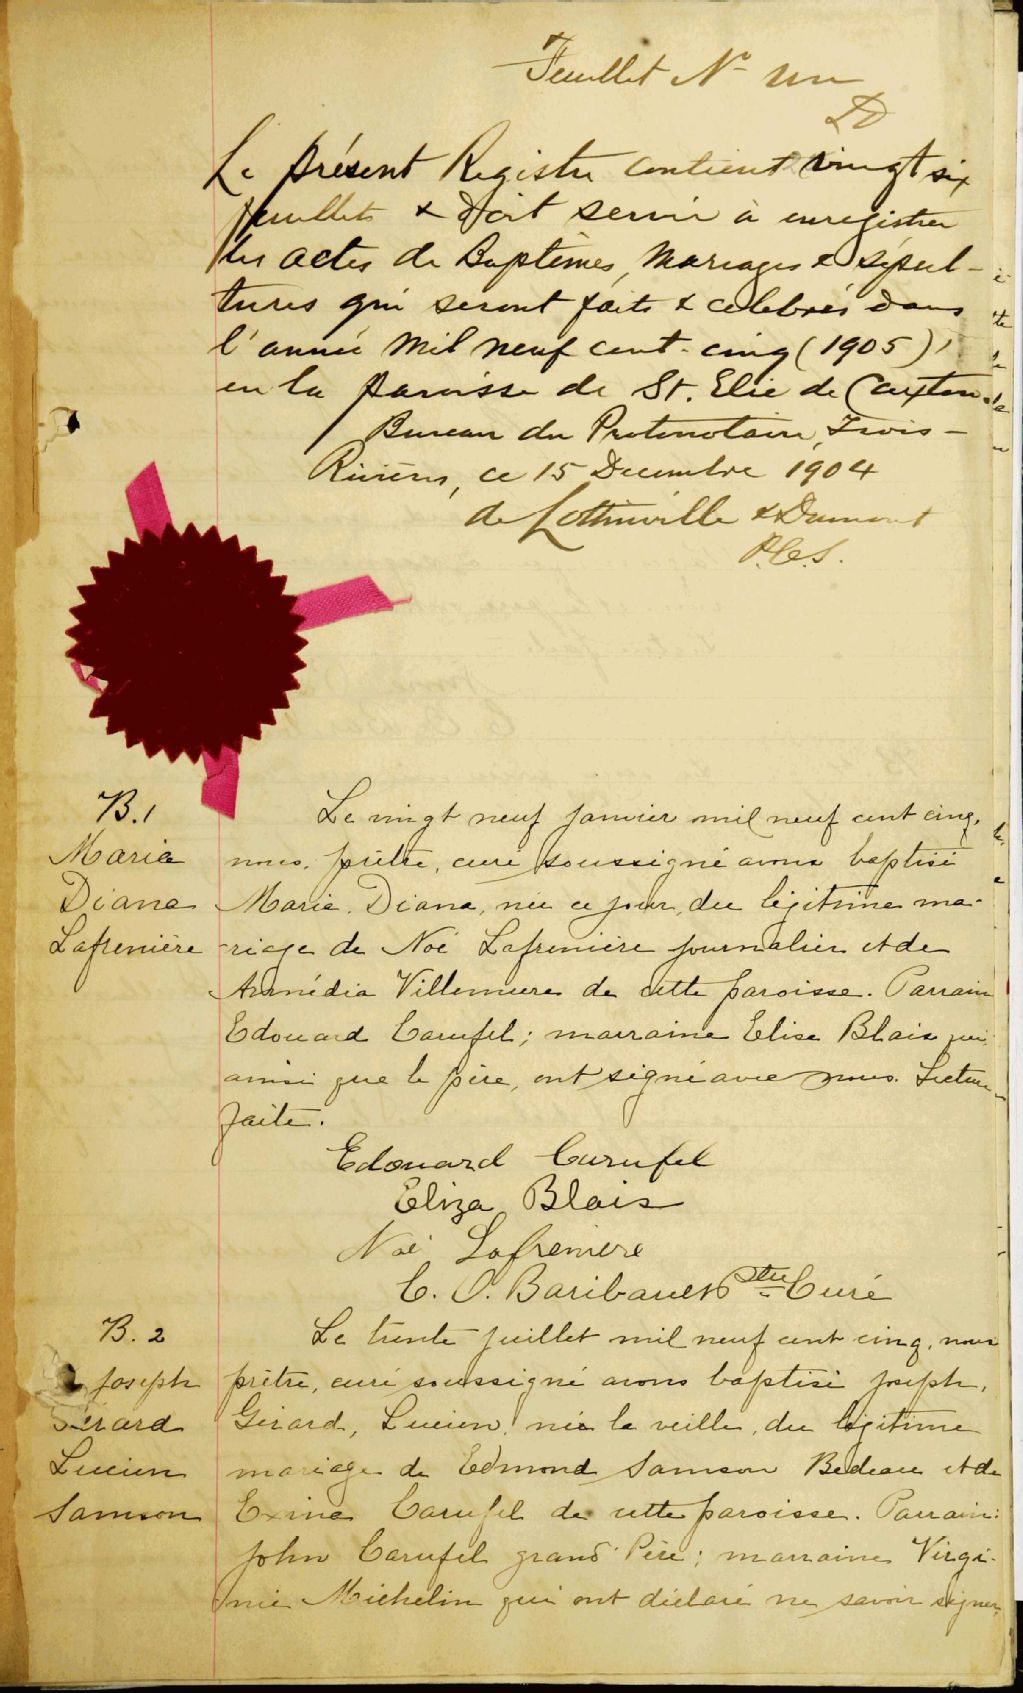 Feuillet No un
LD
Le présent Registre contient vingt six
feuillets & doit servir à enregistrer
les actes de Baptêmes, Mariages & sépul-
tures qui seront faits & célébrés dans
l'année Mil neuf cent-cinq (1905)
en la paroisse de St. Elie de Caxton.
Bureau du Protonotaire, Trois-
Rivières, ce 15 Decembre 1904
de Lottinville & Dumont
P.C.S.
B.1
Maria
Diana
Lafrenière
Le vingt neuf janvier mil neuf cent cinq,
nous, prêtre, curé soussigné avons baptisé
Marie, Diana, née ce jour, du légitime ma-
riage de Noé Lafrenière journalier et de
Armédia Villemure de cette paroisse. Parrain
Edouard Carufel; marraine Elise Blais qui,
ainsi que le père, ont signé avec nous. Lecture
faite.
Edouard Carufel
Eliza Blais
Noé Lafreniere
C. O. Baribault Ptre Curé
B. 2
Joseph
Gérard
Lucien
Samson
Le trente juillet mil neuf cent cinq, nous
prêtre, curé soussigné avons baptisé Joseph,
Gérard, Lucien, né la veille, du légitime
mariage de Edmond Samson Bedeau et de
Exina Carufel de cette paroisse. Parrain:
John Carufel grand Père; marraine Virgi-
nie Michelin qui ont déclaré ne savoir signer,